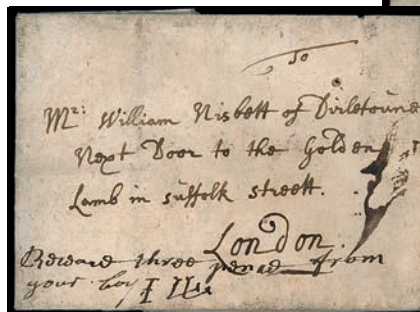 To
Mr: William Nisbett of Dirletoune
Next Door to the Golden
Lamb in suffolk streett.
London
three pence from
your boy